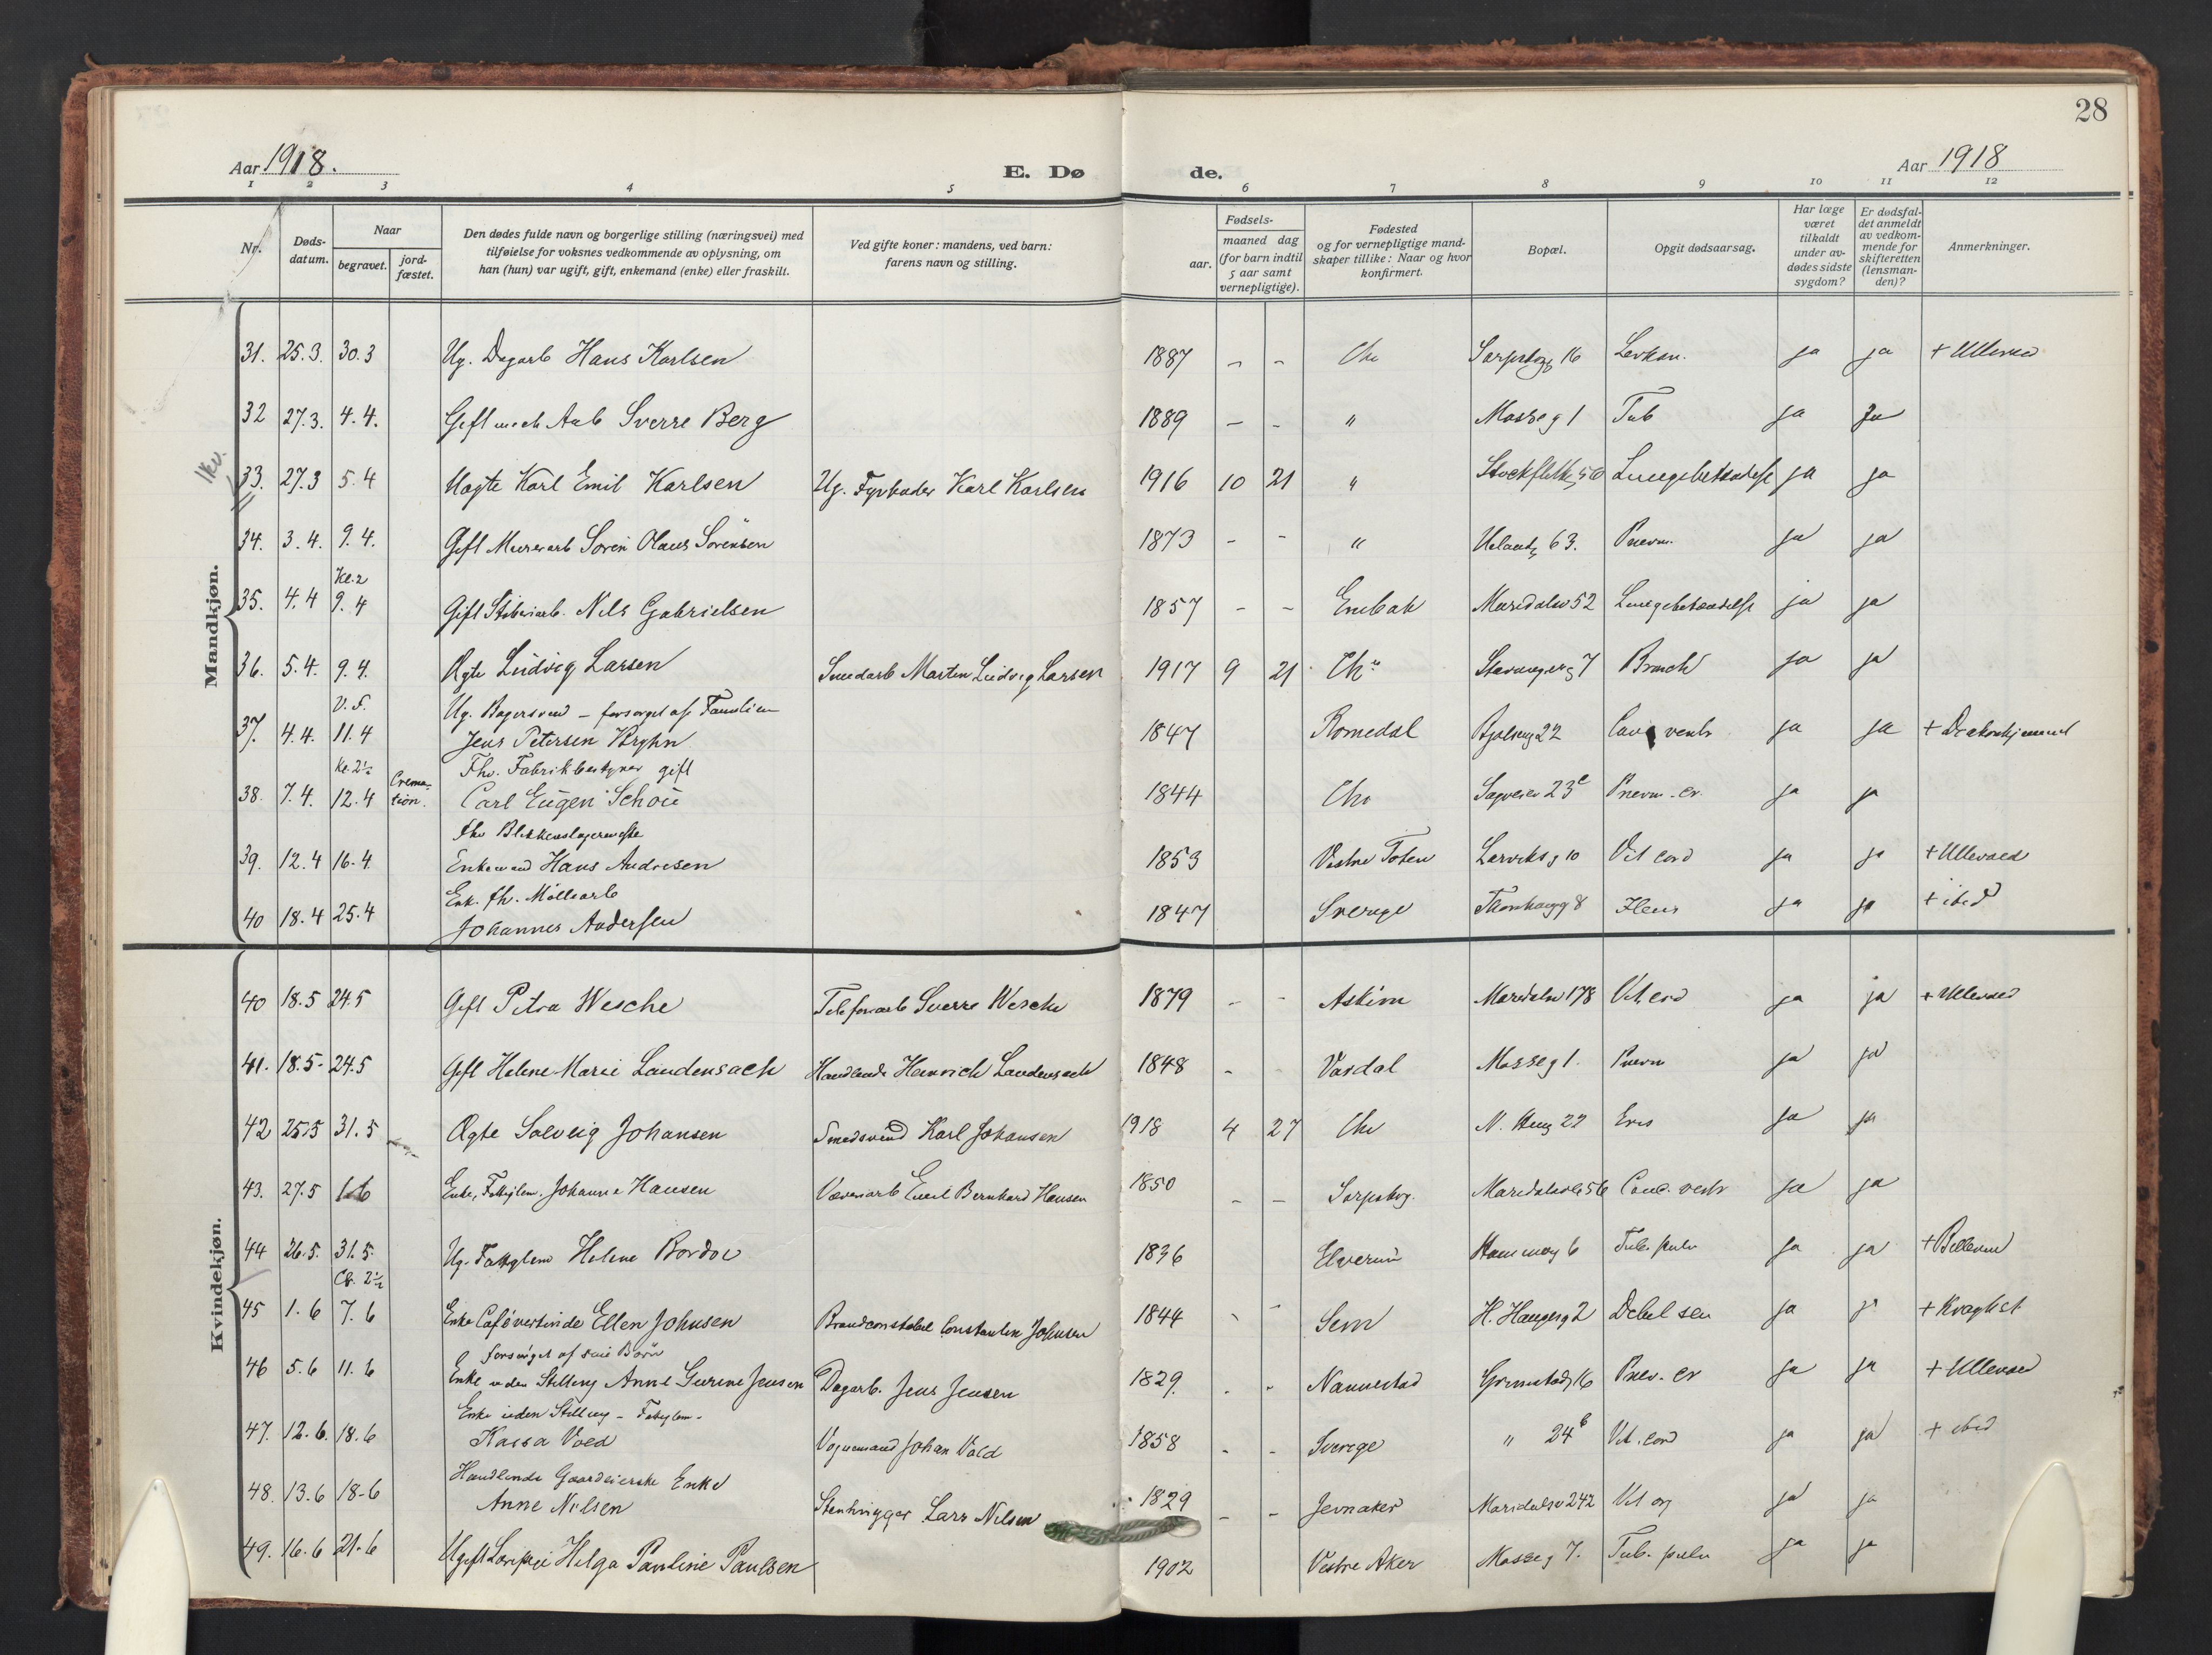 28
Aar 1918.
E. Dø
de.
Aar 1918
1 2 3 4 5 6 7 8 9 10 11 12
Nr.
Døds-
datum.
Naar
begravet.
jord-
fæstet.
Den dødes fulde navn og borgerlige stilling (næringsvei) med
tilføielse for voksnes vedkommende av oplysning, om
han (hun) var ugift, gift, enkemand (enke) eller fraskilt.
Ved gifte koner: mandens, ved barn:
farens navn og stilling.
Fødsels-
aar.
maaned dag
(for barn indtil
5 aar samt
vernepligtige).
Fødested
og for vernepligtige mand-
skaper tillike: Naar og hvor
konfirmert.
Bopæl.
Opgit dødsaarsag.
Har læge
været
tilkaldt
under av-
dødes sidste
sygdom?
Er dødsfal-
det anmeldt
av vedkom-
mende for
skifteretten
(lensman-
den)?
Anmerkninger.
Mandkjøn.
31. 25.3. 30.3 Ug. Dagarb Hans Karlsen 1887 – – Chr 16 ja ja + Ullevaal
32 27.3. 4.4. Gift mech Arb Sverre Berg 1889 – – " Mosseg 1 Tub ja ja
1kv.
33. 27.3 5.4 Uægte Karl Emil Karlsen Ug. Fyrbøder Karl Karlsen 1916 10 21 " Stockflethsg 50 Lungebetændelse ja ja
34. 3.4. 9.4. Gift Murerarb Søren Olaus Sörensen 1873 – – " Uelandsg 63. Pnevm. ja ja
Kl. 2
35. 4.4 9.4 Gift Støberiarb. Nils Gabrielsen 1857 – – Enebak Maridalsv 52 Lungebetændelse ja ja
36. 5.4. 9.4. Ægte Ludvig Larsen Smedarb Morten Ludvig Larsen 1917 9 21 Chr Stavangerg 7 Bronch ja ja
V.F. Ug. Bagersvend – forsørget af Familien
37. 4.4. 11.4 Jens Petersen 1847 Romedal Bjølseng 22 ventr ja ja
Kl. 2½ Fhv. Fabrikbestyrer gift
38. 7.4. 12.4 Crema-
tion. Carl Eugen Schou 1844 Chr Sagveien 23c Pnevm. cr ja ja
fhv Blikkenslagermester
39. 12.4 16.4 Enkemand Hans Andresen 1853 Vestre Toten Larviksg 10 Vit cord ja ja + Ullevaal
Enk. fh. Mølleearb
40 18.4 25.4 Johannes Andersen 1847 Sverige 8 Ileus ja ja + ibid
Kvindekjøn.
40 18.5 24.5 Gift Petra Wesche Telefonarb Sverre Wesche 1879 – – Askim Maridalsv 178 Vit cord ja ja + Ullevaal
41. 18.5 24.5 Gift Helene Marie Laudensach Handlende Heinrich Laudensach 1848 – Vardal Mosseg 1. Pnevm ja ja
42 25.5 31.5 Ægte Solveig Johansen Smedsvend Karl Johansen 1918 4 27 Chr 22 ja ja
43. 27.5 1.6 Enke, Fattiglem. Johanne Hansen Væveriarb Emil Bernhard Hansen 1850 – – Sarpsborg. Maridalsv 56 ja ja
44 26.5. 31.5. Ug. Fattiglem Helene Bordoe 1836 Elverum 6 Tub. pulm ja ja
Kl. 2½
45 1.6 7.6 Enke Caféverdinde Ellen Johnsen Brandconstabel Constantin Johnsen 1844 – – Sem H. Haugesg 2 ja ja
forsørget af sine Børn
46 5.6 11.6 Enke uden Stilling Anne Gurine Jensen Dagarb. Jens Jensen 1829. – – Nannestad Grimstadg 16 Pnev. cr ja ja + Ullevaal
Enke uden Stilling – Fattiglem –
47. 12.6. 18.6 Kaisa Vold Vognmand Johan Vold 1858 – – Sverige " 24b Vit. cord ja ja + ibid
Handlende Gaardeierske Enke
48. 13.6 18-6 Anne Nilsen Stenhugger Lars Nilsen 1829 – – Jevnaker Maridalsv 242 Vit org ja ja
49. 16.6 21.6 Ugift Helga Pauline Paulsen 1902 Vestre Aker Mosseg 7. Tub. pulm ja ja